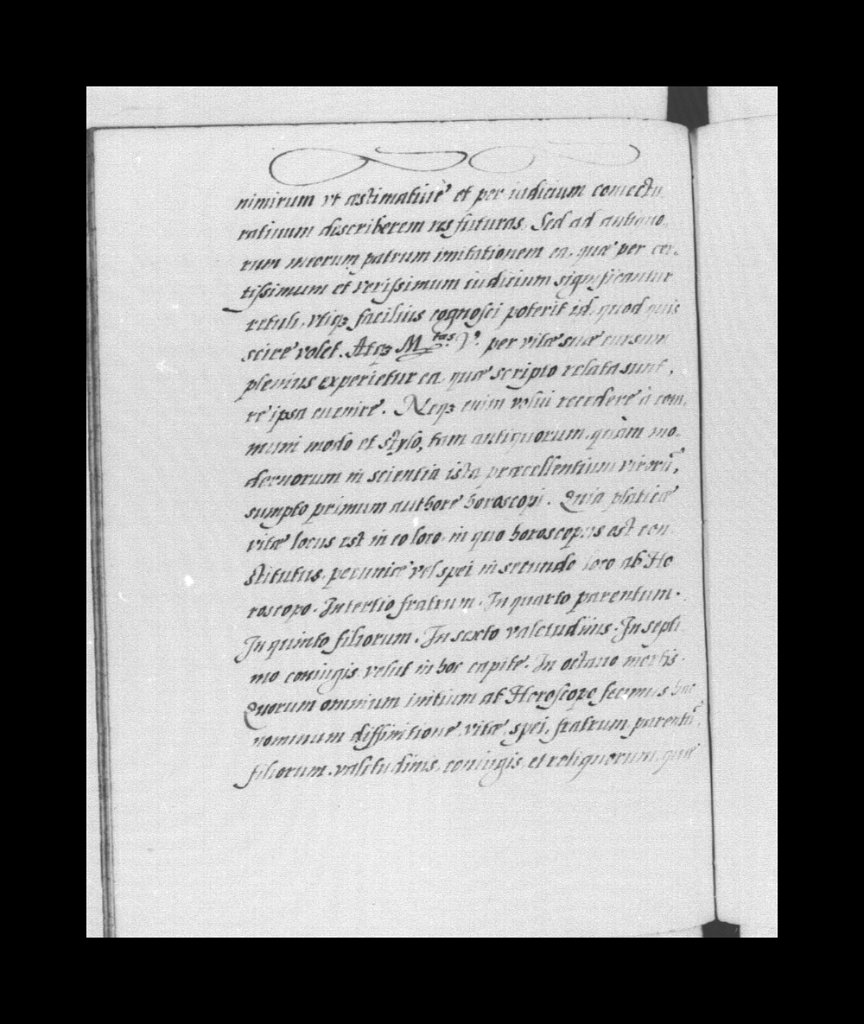 nimirum vt æstimatiuè et per iudicium coniectu
ratiuum discriberem res futuras. Sed ad antiquo,
rum meorum patrum imitationem ea, quæ per cer,
tissimum et verissimum iudicium significantur
retuli, vtiqꝫ facilius cognosci poterit id, quod quis
scire volet. Atqꝫ M.tas V.ª per vitæ suæ cursum
plenius experietur ea, quæ scripto relata sunt,
re ipsa euenire. Neqꝫ enim volui recedere à com,
muni modo et stylo, tam antiquorum, quàm mo,
dernorum in scientia ista præcellentium virorũ,
sumpto primum authore horoscopi. Quia platicæ
vitæ locus est in eo loco, in quo horoscopus est con
stitutus, pecuniæ vel spei in secundo loco ab Ho
roscopo. In tertio fratrum. In quarto parentum.
In quinto filiorum. In sexto valetudinis. In septi
mo coniugis, velut in hoc capite. In octauo mortis.
Quorum omnium initium ab Horoscopo fecimus hac
nominum diffinitione, vitæ, spei, fratrum, parentũ,
filiorum, valitudinis, coniugis, et reliquorum, quæ